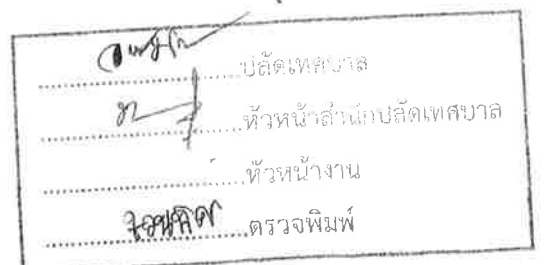 ปลัดเทศบาล
หัวหน้าสำนักปลัดเทศบาล
หัวหน้างาน
ตรวจพิมพ์